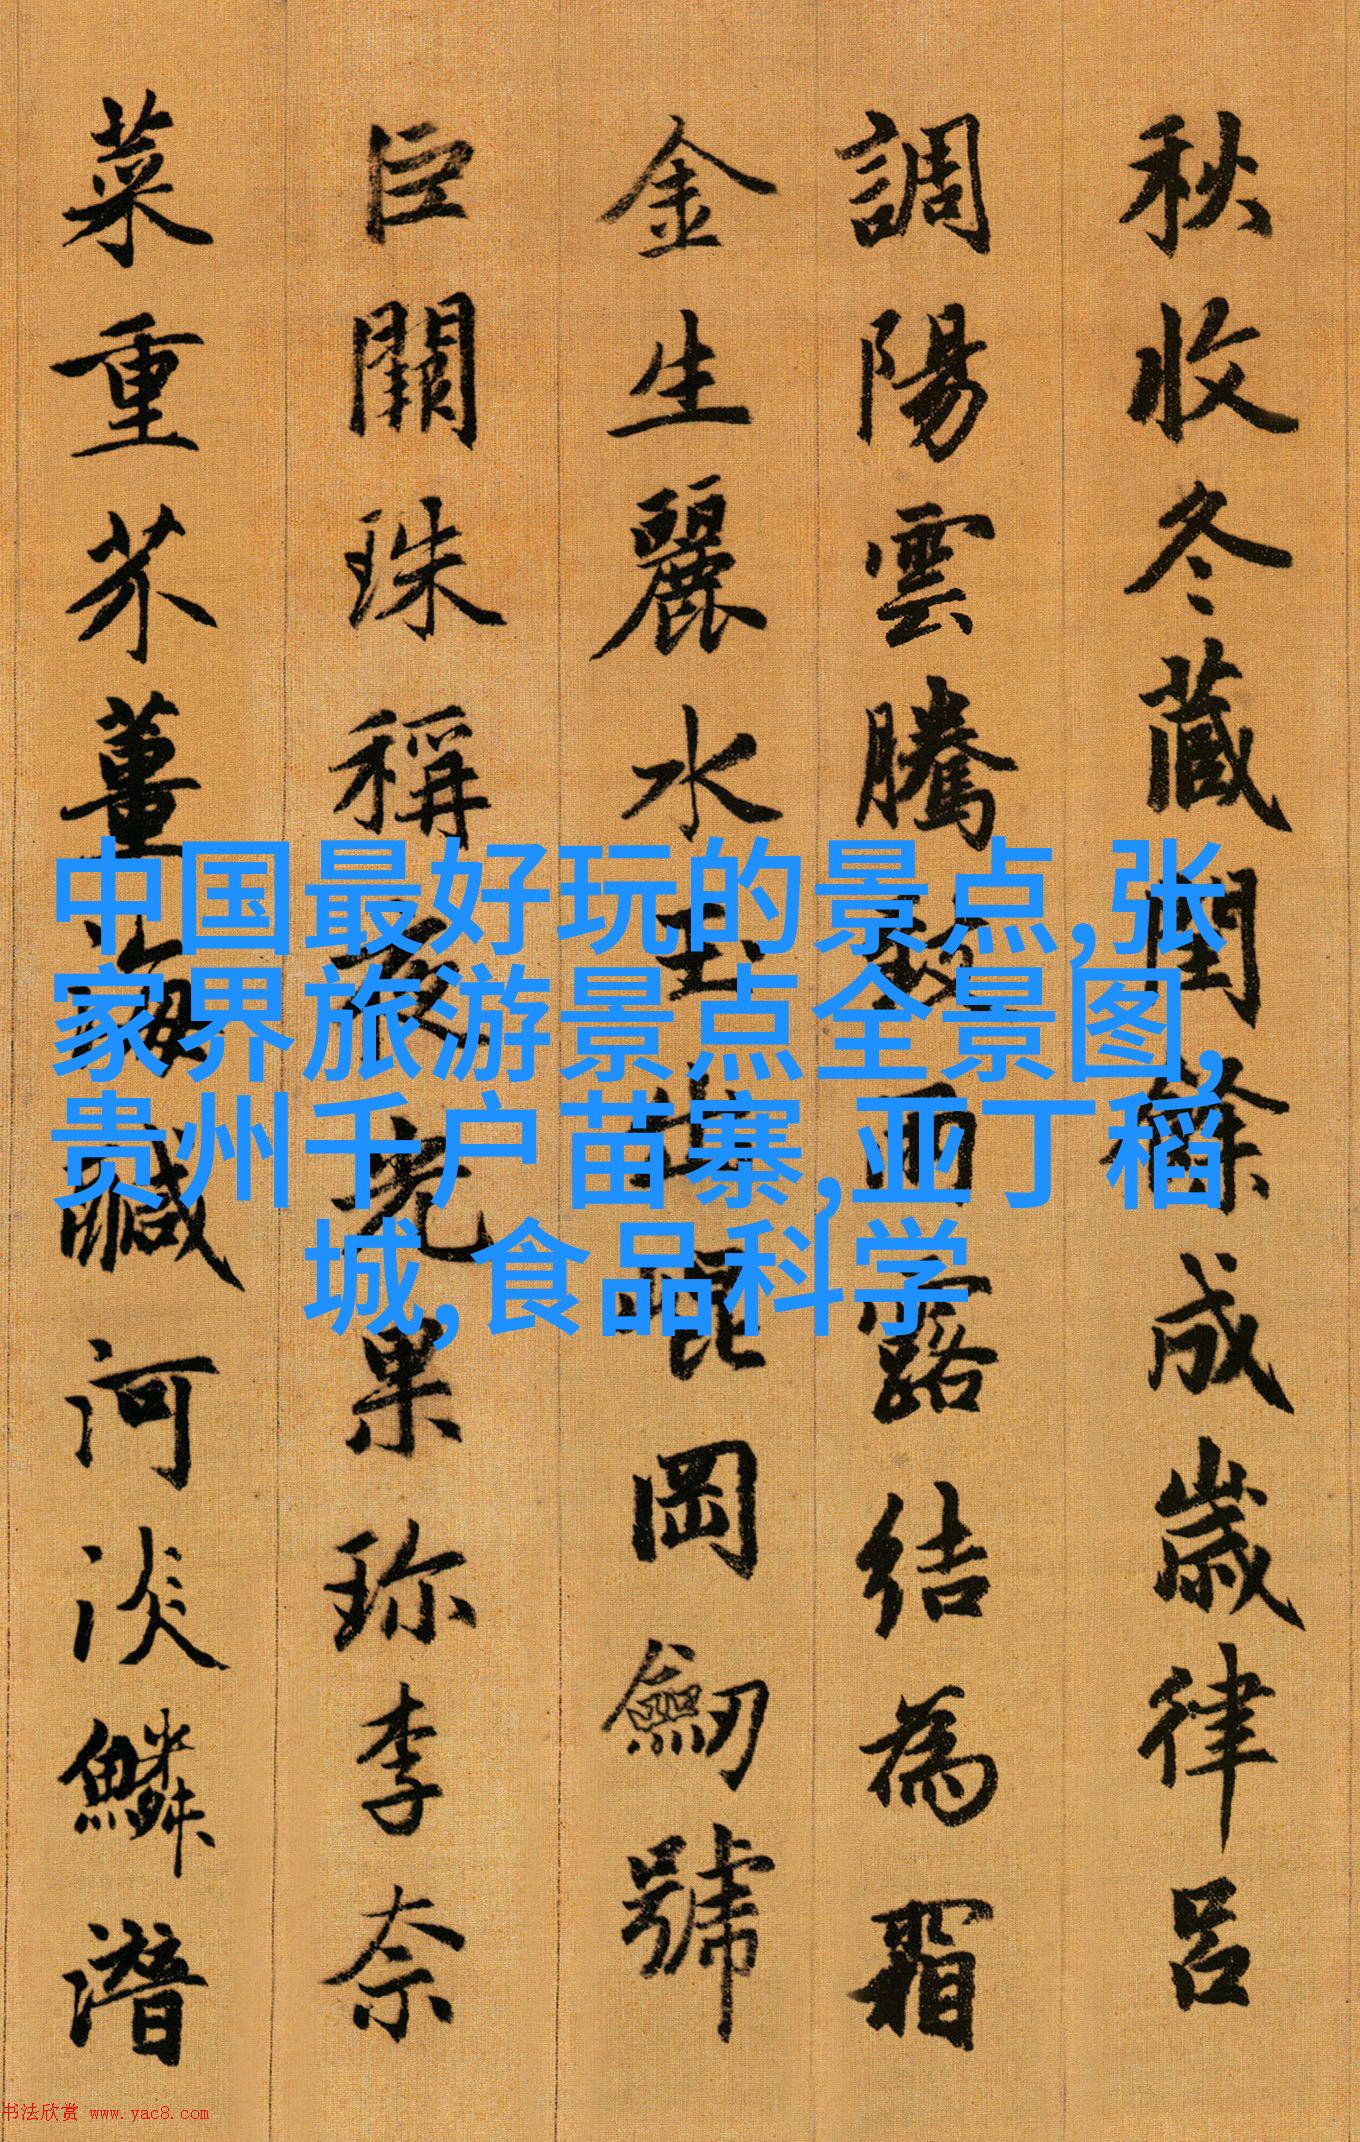 秋收冬藏閏餘成歲律呂
調陽雲騰致雨露結為霜
金生麗水玉出崐岡劒號
巨闕珠稱夜光果珍李奈
菜重芥薑海鹹河淡鱗潛
中国最好玩的景点,张
家界旅游景点全景图,
贵州千户苗寨,亚丁稻
城,食品科学
书法欣赏 www.yac8.com